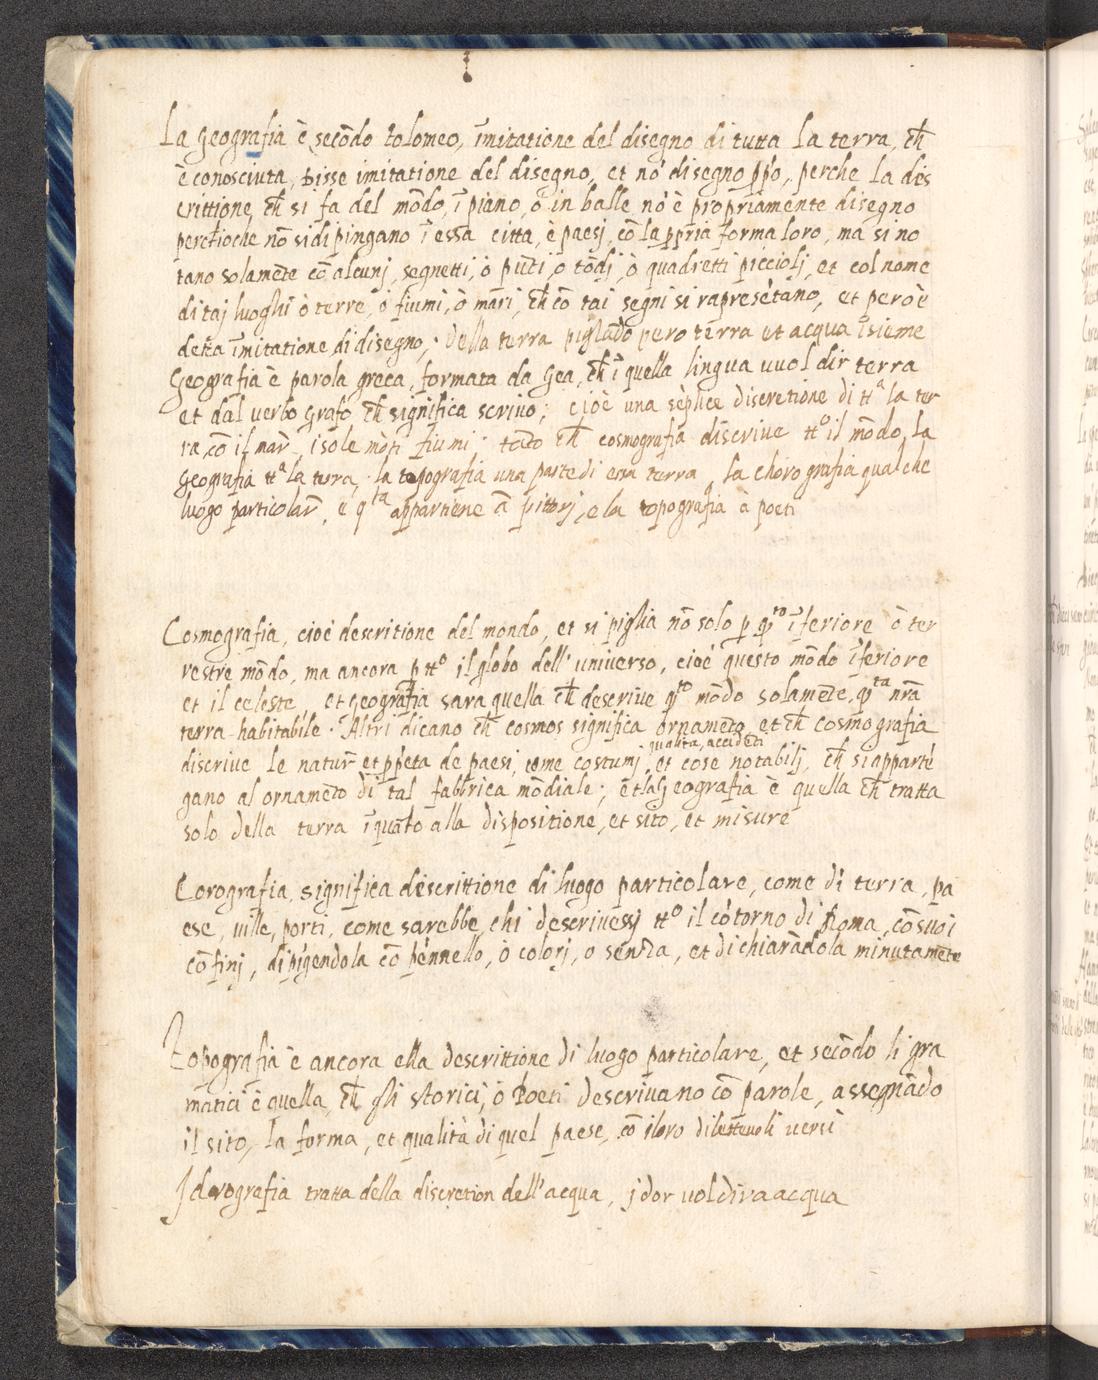 La geografia è secōdo tolomeo, īmitatione del disegno di tutta la terra, ch̄
è conosciuta, Disse imitatione del disegno, et nō disegno ꝓpo, perche la dis
crittione, ch̄ si fa del mōdo, ī piano, ò in balle nō è propriamente disegno
percioche nō si dipingano ī essa citta, è paesj, cō la ꝓpria forma loro, ma si no
tano solamēte cō alcunj, segnetti, ò pūti, o tōdj, ò quadretti picciolj, et col nome
di taj luoghi ò terre, ò fiumi, ò mari, ch̄ cō tai segni si rapresētano, et però è
detta īmitatione di disegno, · Della terra pigliādo pero terra et acqua īsieme
Geografia è parola greca, formata da gea, ch̄ ī quella lingua vuol dir terra
et dal verbo grafo ch̄ significa scrivo; cioè una sēplice discretione di ttᵃ la ter
ra cō il mar̄, isole mōti fiumi · ch̄ cosmografia discrive ttᵒ il mōdo, la
geografia ttᵃ la terra, la topografia una parte di essa terra, la chorografia qualche
luogo particolar̄, e qᵗᵃ appartiene à pittorj, e la topografia à poeti
Cosmografia, cioè descritione del mondo, et si piglia nō solo ꝑ qᵗᵒ īferiore ò ter
restre mōdo, ma ancora ꝑ ttᵒ il globo dell' universo, cioè questo mōdo īferiore
et il celeste, et geografia sara quella ch̄ descrive qᵗᵒ mōdo solamēte, qᵗᵃ nr̄a
terra habitabile · Altri dicano ch̄ cosmos significa ornamēto et ch̄ cosmografia
qualita, accidēti
discrive le natur̄ et ꝓpeta de paesi, come costumj, et cose notabilj, ch̄ si appartē
gano al ornamēto di tal fabbrica mōdiale; et la Geografia è quella ch̄ tratta
solo della terra īquāto alla dispositione, et sito, et misure
Corografia, significa discrittione di luogo particolare, come di terra, pa
ese, ville, porti, come sarebbe, chi descrivessj ttᵒ il cōtorno di Roma, cō suoi
cōfinj, dipīgendola cō pēnnello, ò colorj, o senza, et dichiarādola minutamēte
Topografia è ancora ella descrittione di luogo particolare, et secōdo li gra
matici è quella, ch̄ gli storici, ò Poeti descrivano cō parole, assegnādo
il sito, la forma, et qualità di quel paese, cō i loro dilettevoli versi
Jdorografia tratta della discretion dell'acqua, jdor vol dir aacqua